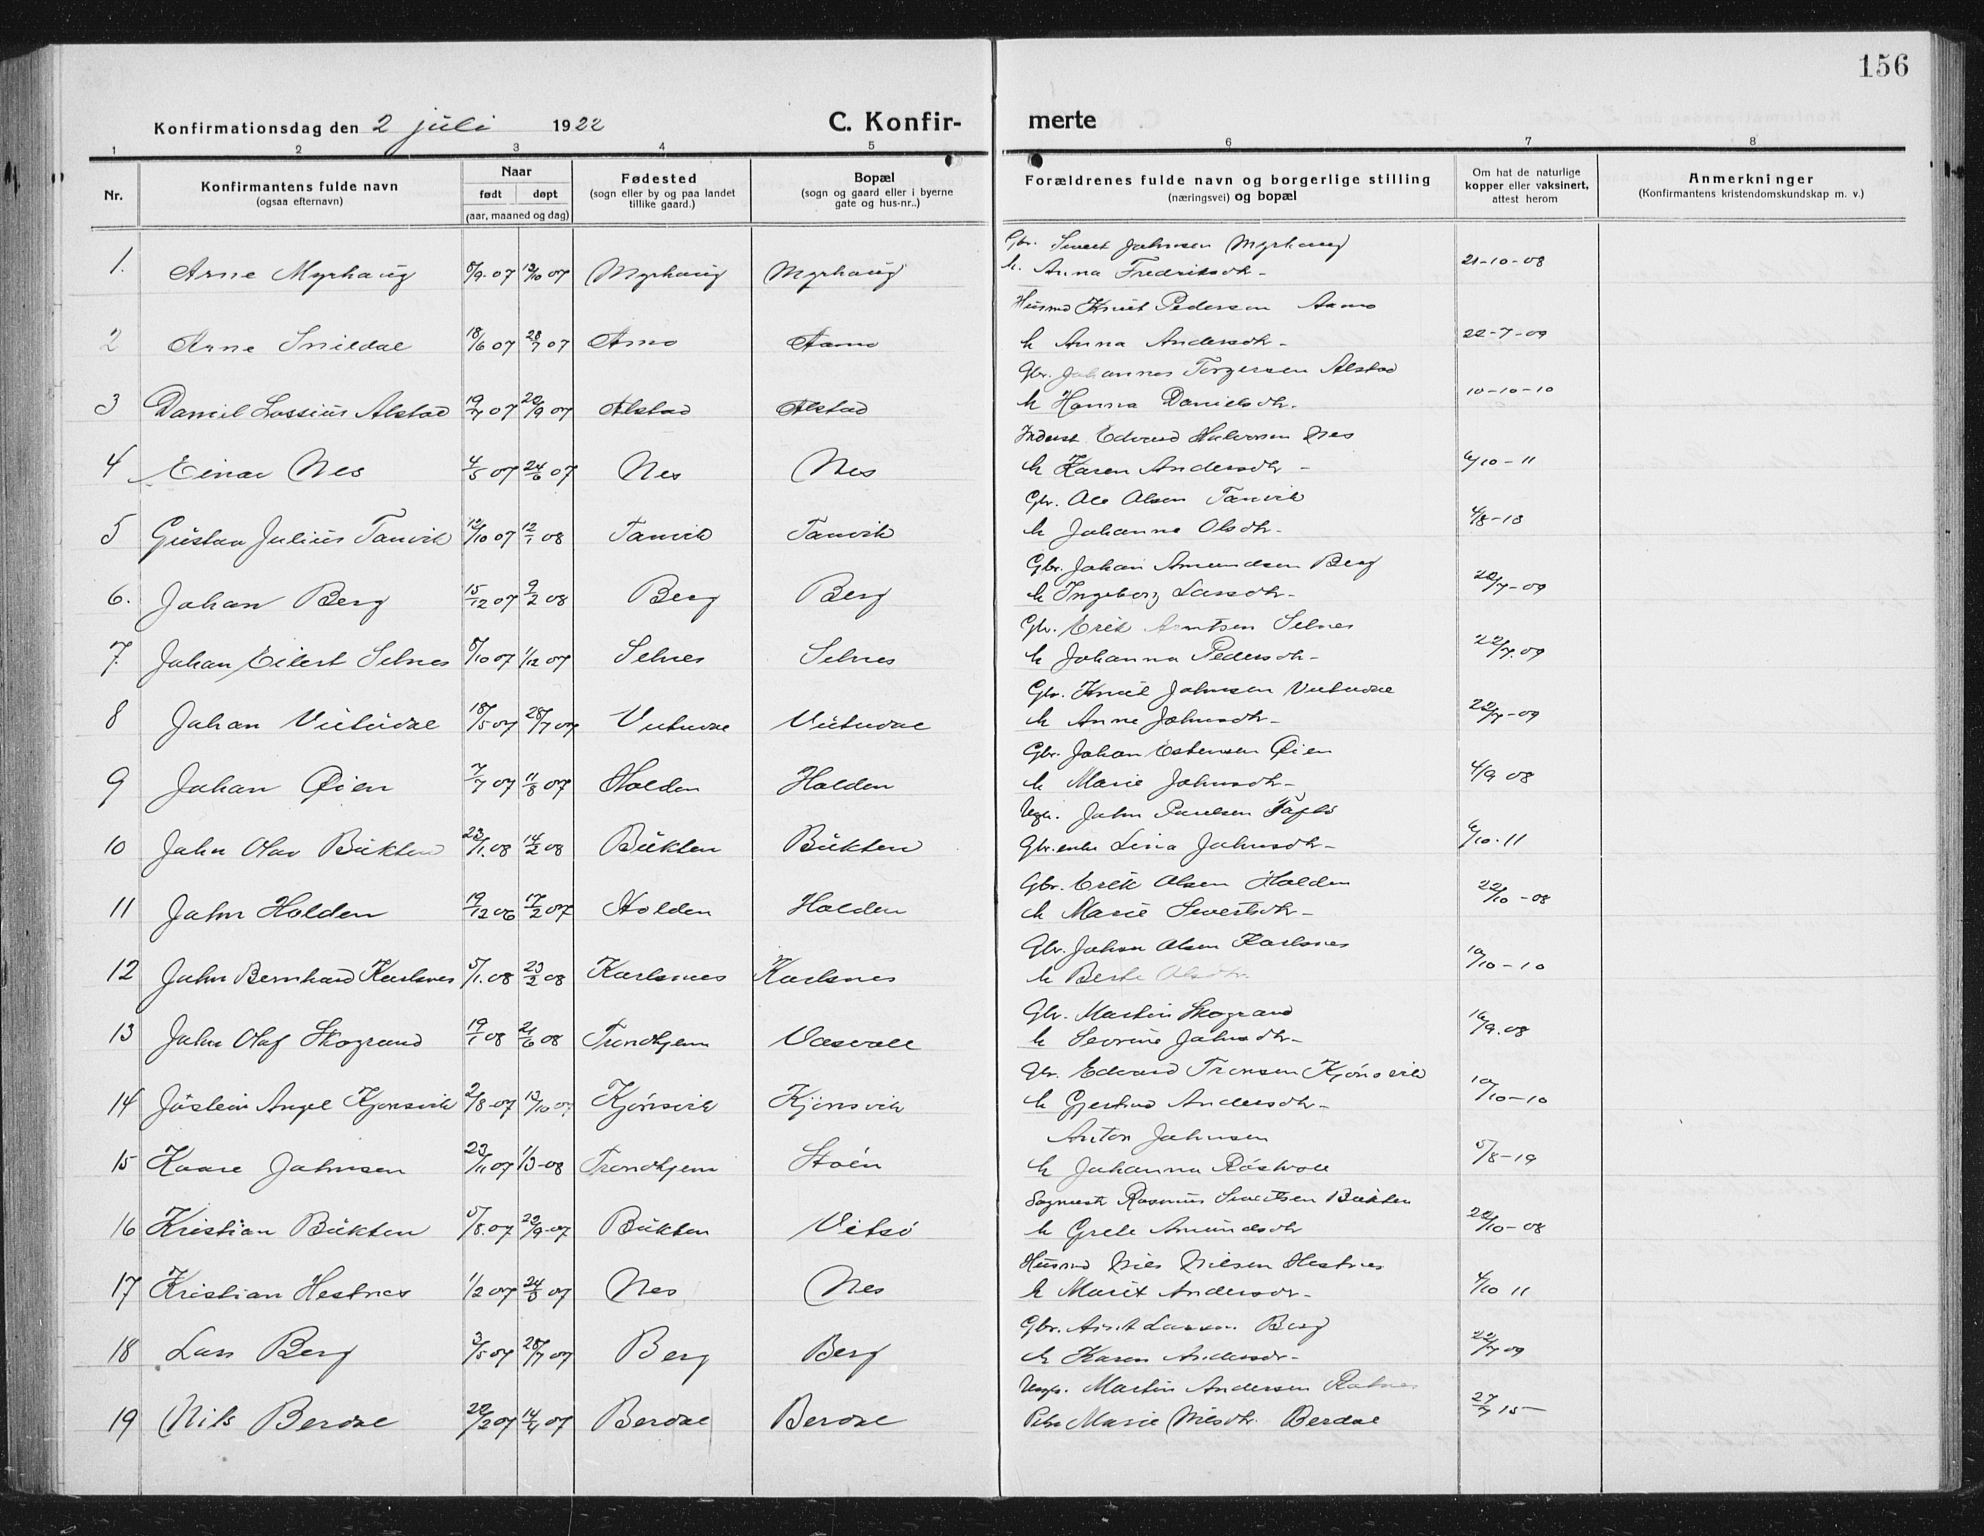 156
Konfirmationsdag den 2 juli 1922 C. Konfir- merte
1 2 3 4 5 6 7 8
Nr. Konfirmantens fulde navn (ogsaa efternavn) Naar født døpt (aar, maaned og dag) Fødested (sogn eller by og paa landet tillike gaard.) Bopæl (sogn og gaard eller i byerne gate og hus-nr..) Forældrenes fulde navn og borgerlige stilling (næringsvei) og bopæl Om hat de naturlige kopper eller vaksinert, attest herom Anmerkninger (Konfirmantens kristendomskundskap m. v.)
Gbr. Sivert Johnsen Myrhaug
1. Arne Myrhaug 8/9 07 13/10 07 Myrhaug Myrhaug h. Anna Fredriksdtr. 21-10-08
Husmd Knut Pedersen Aamo
2 Arne Snildal 18/6 07 28/7 07 Aamo Aamo h Anna Andersdtr. 22-7-09
Gbr. Johannes Torgersen Alstad
3 Daniel Lossius Alstad 19/7 07 20/9 07 Alstad Alstad h Hanna Danielsdtr. 10-10-10
Inderst Edvard Halvorsen Nes
4 Einar Nes 4/5 07 24/6 07 Nes Nes h Karen Andersdtr 6/10-11
Gbr. Ole Olsen Tanvik
5 Gustav Julius Tanvik 12/10 07 12/1 08 Tanvik Tanvik h Johanna Olsdtr. 4/8-18
Gbr. Johan Amundsen Berg
6. Johan Berg 15/12 07 9/2 08 Berg Berg h Ingeborg Larsdtr. 22/7-09
Gbr. Erik Arntsen Selnes
7. Johan Eilert Selnes 8/10 07 1/12 07 Selnes Selnes h Johanna Pedersdtr 22/7.09
Gbr. Knut Johnsen Vutudal
8 Johan Vutudal 18/5 07 28/7 07 Vutudal Vutudal h Anne Johnsdtr 22/7-09
Gbr. Johan Estensen Øien
9 Johan Øien 7/7 07 11/8 07 Holden Holden h Marie Johnsdtr 4/9 08
John Paulsen
10 John Olav Bukten 23/1.08 14/2 08 Bukten Bukten Gbr.enke Lina Johnsdtr 6/10.11
Gbr. Erik Olsen Holden
11 John Holden 19/12 06 17/2 07 Holden Holden h Marie Sivertsdtr 22/10-08
Gbr. Johan Olsen Karlsnes
12 John Bernhard Karlsnes 5/1.08 23/2 08 Karlsnes Karlsnes h Berit Olsdtr. 10/10-10
Gbr. Martin Skogrand
13 John Olaf Skogrand 19/1 08 21/6 08 Trondhjem Vasvall h Sevrine Johnsdtr 16/9.08
Gbr. Edvard Tronsen Kjønsvik
14 Jostein Angel Kjønsvik 2/8-07 13/10 07 Kjønsvik Kjønsvik h Gjertrud Andersdtr 10/10-10
Anton Johnsen
15 Kaare Johnsen 23/11 07 1/3-08 Trondhjem Stoën h Johanna Røstvoll 5/8-19
Rasmus Sivertsen Bukten
16 Kristian Bukten 5/8.07 22/9-07 Bukten Vitsø h Grete Amundsdtr 22/10-08
Husmd Nils Nilsen Hestnes
17 Kristian Hestnes 1/2 07 24/3 07 Nes Nes h Marit Andersdr 4/10 11
Gbr. Arnt Larsen Berg
18 Lars Berg 3/5 07 28/7 07 Berg Berg h Karen Andersdr 22/7 09
Ungk. Martin Andersen
19 Nils Berdal 22/2 07 14/4 07 Berdal Berdal Pike Marie Nilsdtr. Berdal 27/7 15